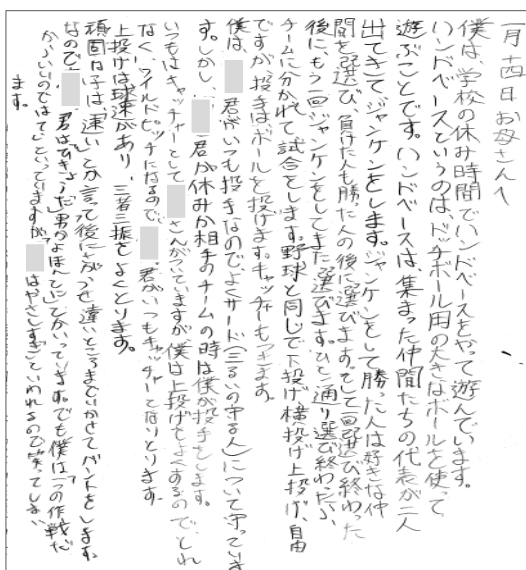 一月十四日お母さんへ
僕は、学校の休み時間でハンドベースをやって遊んでいます。
ハンドベースというのは、ドッチボール用の大きなボールを使って
遊ぶことです。ハンドベースは、集まった仲間たちの代表が二人
出てきてジャンケンをします。ジャンケンをして勝った人は好きな仲
間を選び、負けた人も勝った人の後に選びます。そして一回選び終わった
後に、もう一回ジャンケンをしてまた選びます。ひと通り選び終わったら、
チームに分かれて試合をします。野球と同じで下投げ、横投げ、上投げ、自由
ですが投手はボールを投げます。キャッチャーもできます。
僕は、君がいつも投手なので、よくサード(三るいの守る人)について守っていま
す。しかし、君が休みか相手のチームの時は僕が投手をします。
いつもはキャッチャーとしてさんがいていますが僕は上投げをよくするので、とれ
なく、ワイルドピッチになるので、君がいつもキャッチャーとなりとります。
上投げは球速があり、三者三振をよくとります。
頑固な子は、「速い」とか言って後にさがらせ遠いところまでいかせてバントをします。
なので、君は「ひきょうだ」男がよほんとにむかっています。でも僕は「一つの作戦だ
からいいのでは」といっていますが「はやさしすぎ」といわれるので笑ってしまい
ます。